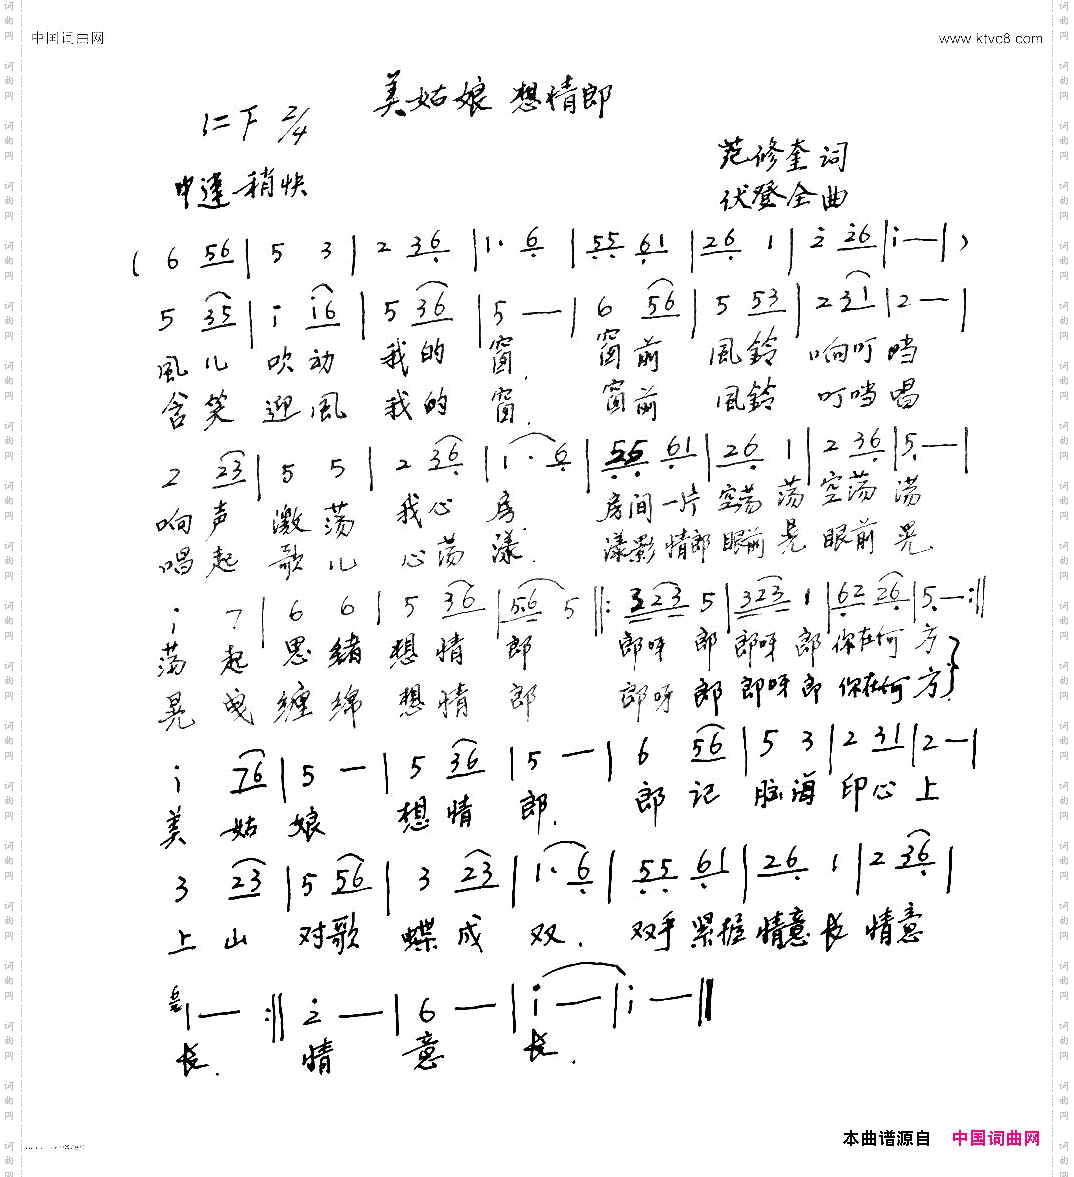 中国词曲网
www.ktvc8.com
美姑娘 想情郎
1=F 2/4
范修奎词
伏登全曲
中速稍快
( 6 56 | 5 3 | 2 36 | 1· 6 | 55 61 | 26 1 | 2 26 | i — | )
5 35 | i i6 | 5 36 | 5 — | 6 56 | 5 53 | 2 31 | 2 — |
風儿 吹动 我的 窗. 窗前 風鈴 响叮 当
含笑 迎風 我的 窗. 窗前 風鈴 叮当 唱
2 23 | 5 5 | 2 36 | 1· 6 | 55 61 | 26 1 | 2 36 | 5 — |
响声 激荡 我心 房. 房间一片 空荡 荡 空荡 荡
唱起 歌儿 心荡 漾. 漾影情郎 眼前 晃 眼前 晃
i 7 | 6 6 | 5 36 | 56 5 ‖: 323 5 | 323 1 | 62 26 | 5 — :‖
荡起 思绪 想情 郎 郎呀 郎 郎呀 郎 你在何 方
晃曳 缠绵 想情 郎 郎呀 郎 郎呀 郎 你在何 方
i 76 | 5 — | 5 36 | 5 — | 6 56 | 5 3 | 2 31 | 2 — |
美姑 娘 想情 郎. 郎记 脑海 印心 上
3 23 | 5 56 | 3 23 | 1· 6 | 55 61 | 26 1 | 2 36 |
上山 对歌 蝶成 双. 双手紧握 情意 长 情意
1 — :‖ 2 — | 6 — | i — | i — ‖
长. 情 意 长.
本曲谱源自 中国词曲网